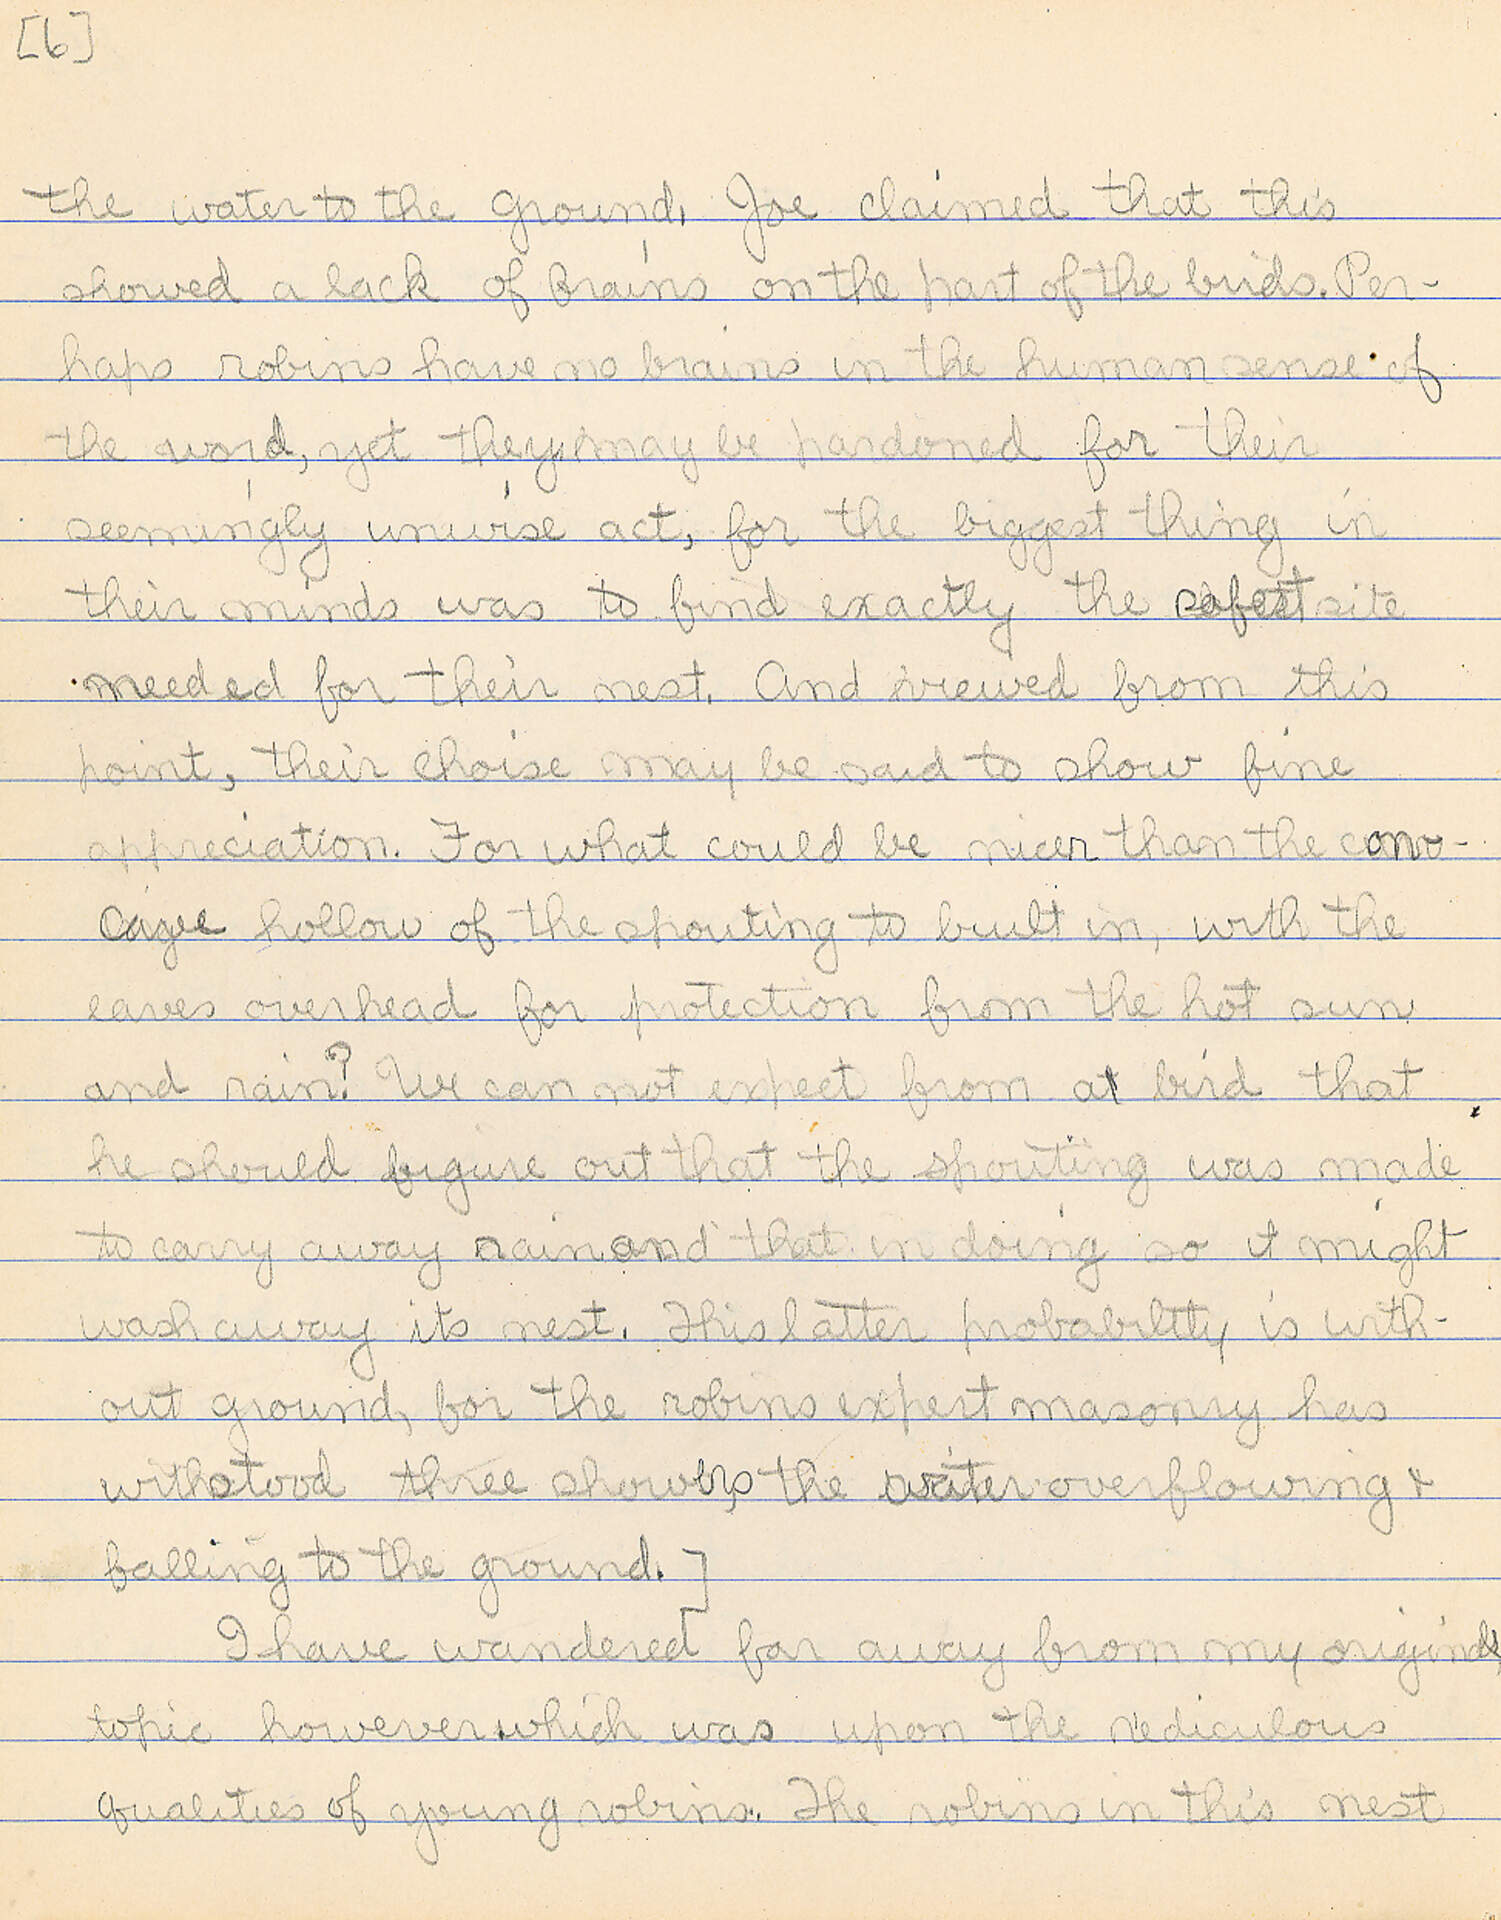 [6]
the water to the ground. Joe claimed that this
showed a lack of brains on the part of the birds. Per-
haps robins have no brains in the human sense of
the word, yet they may be pardoned for their
seemingly unwise act, for the biggest thing in
their minds was to find exactly the safest site
needed for their nest. And viewed from this
point, their choise may be said to show fine
appreciation. For what could be nicer than the
hollow of the spouting to built in, with the
eaves overhead for protection from the hot sun
and rain? We can not expect from a bird that
he should figure out that the spouting was made
to carry away rain and that in doing so it might
wash away its nest. This latter probabiltty is with-
out ground, for the robins expert masonry has
withstood three showers, the water overflowing &
falling to the ground.]
I have wandered far away from my original
topic however which was upon the rediculous
qualities of young robins. The robins in this nest